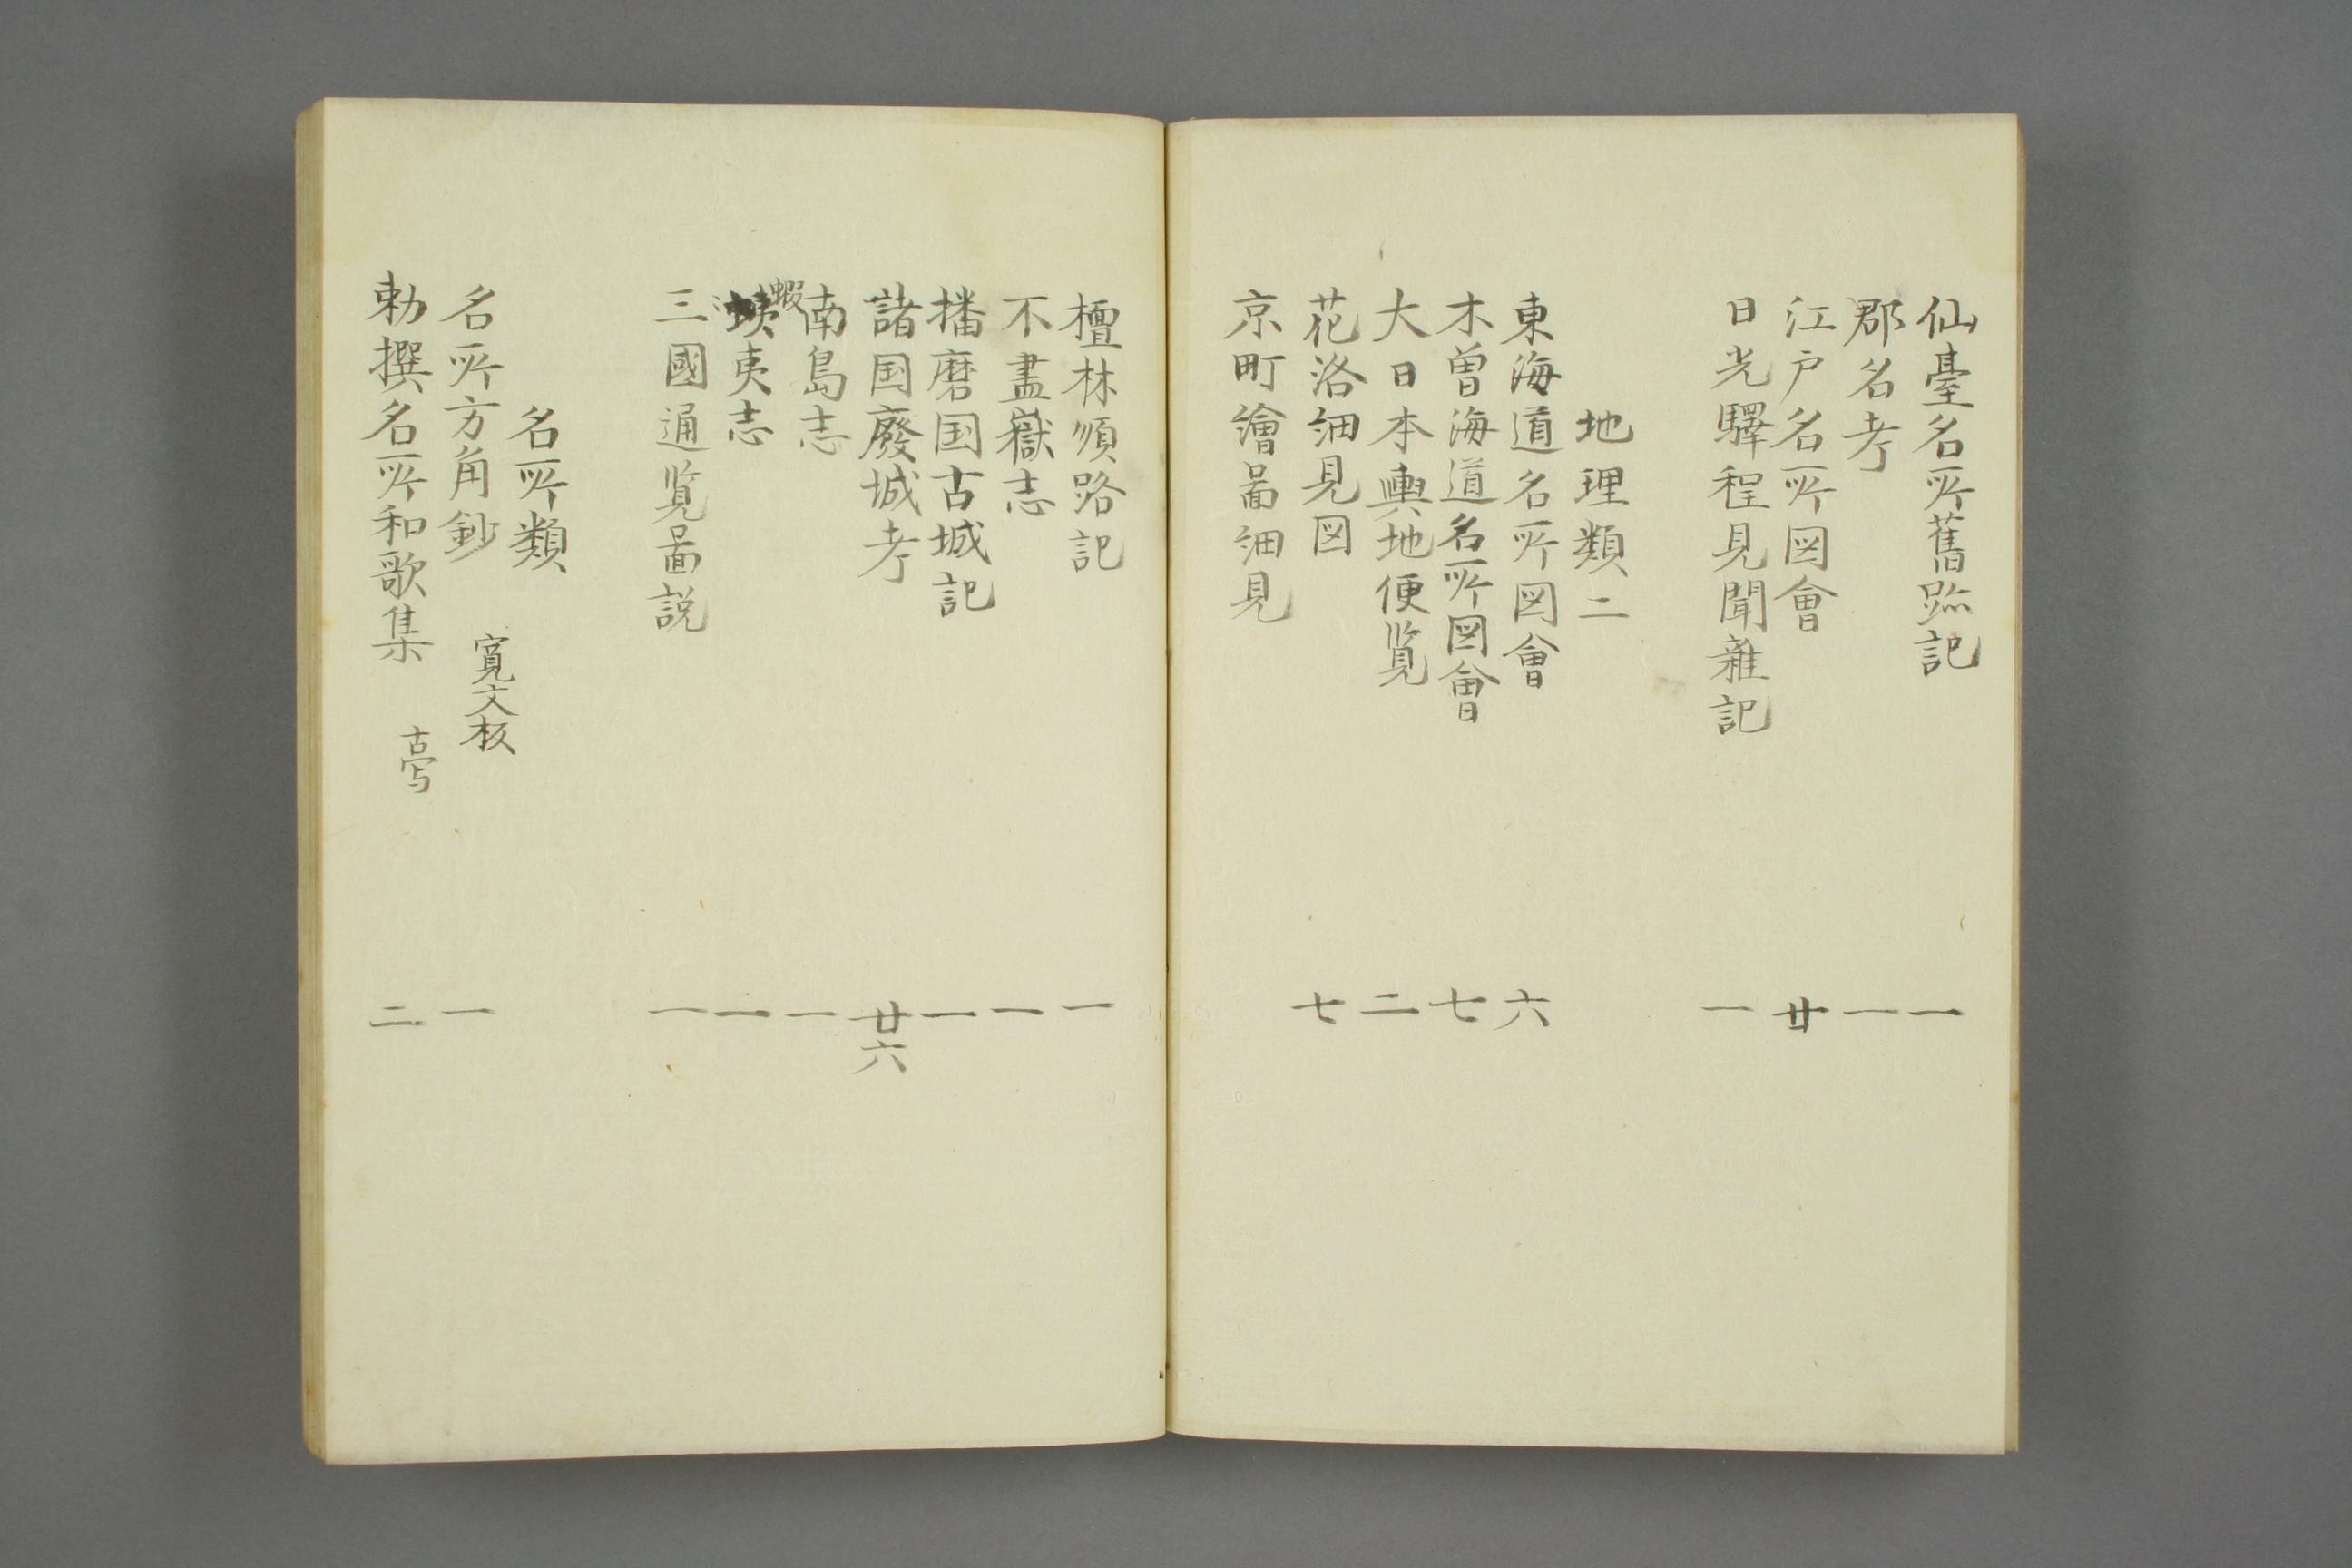 仙臺名所舊跡記 一
郡名考 一
江戸名所図會 廿
日光驛程見聞雑記 一
地理類二
東海道名所図會 六
木曽海道名所図會 七
大日本輿地便覧 二
花洛細見図 七
京町繪啚細見
檀林順路記 一
不盡嶽志 一
播磨国古城記 一
諸国廢城考 廿六
南島志 一
蝦夷志 一
三國通覧啚説 一
名所類
名所方角鈔 寛文板 一
勅撰名所和歌集 古写 二